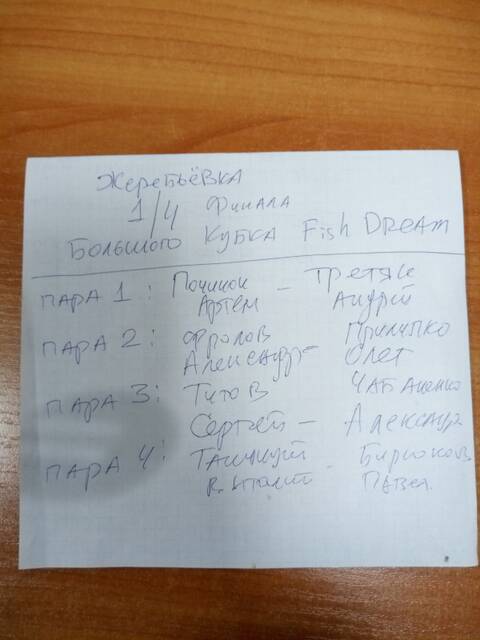 Жеребьёвка
1/4 Финала
Большого Кубка Fish Dream
Пара 1: Починок – Третяк
Артём Андрій
Пара 2: Фролов Прилипко
Александр – Олег
Пара 3: Титов Чабаненко
Сергей – Александр
Пара 4: - Бирюков
Виталий Павел.